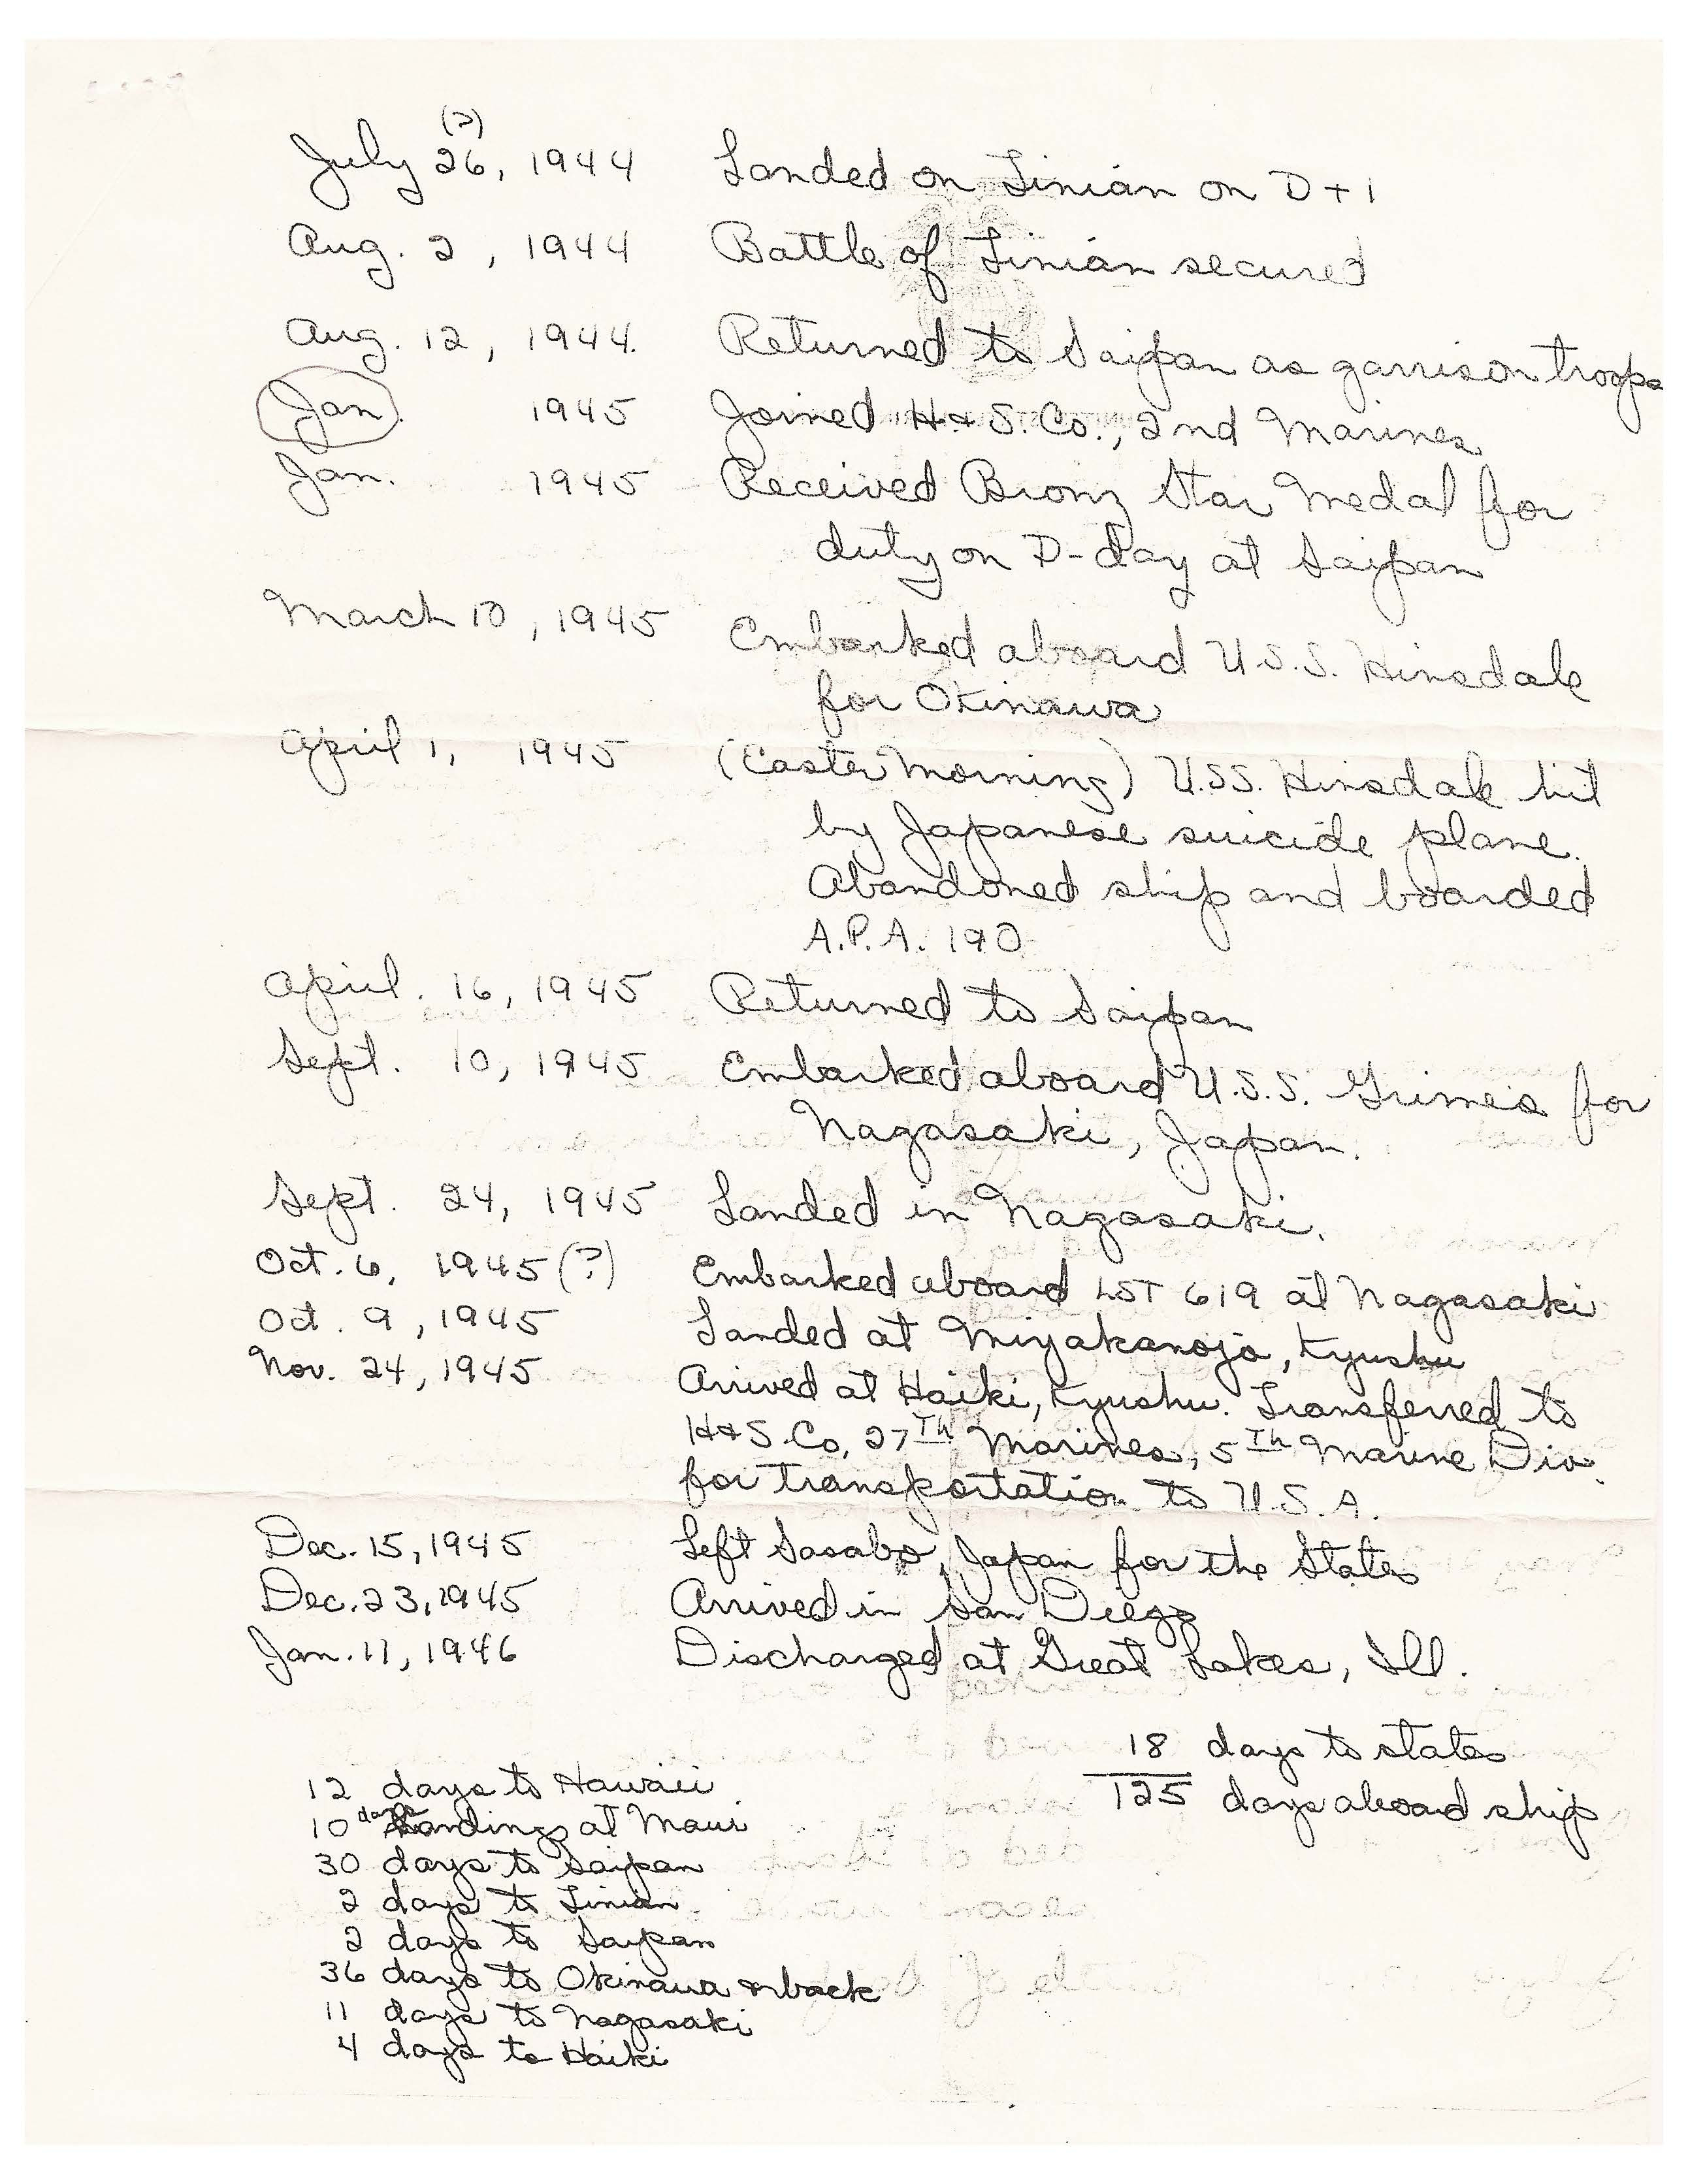 (?)
July 26, 1944 Landed on Tinian on D+1
Aug. 2, 1944 Battle of Tinian secured
Aug. 12, 1944. Returned to Saipan as garrison troops
Jan. 1945 Joined H+S. Co., 2nd Marines
Jan. 1945 Received Bronz Star Medal for
duty on D-day at Saipan
March 10, 1945 Embarked aboard U.S.S. Hinsdale
for Okinawa
April 1, 1945 (Easter Morning) U.S.S. Hinsdale hit
by Japanese suicide plane.
Abandoned ship and boarded
A.P.A. 190
April. 16, 1945 Returned to Saipan
Sept. 10, 1945 Embarked aboard U.S.S. Grimes for
Nagasaki, Japan.
Sept. 24, 1945 Landed in Nagasaki.
Oct. 6, 1945 (?) Embarked aboard LST 619 at Nagasaki
Oct. 9, 1945 Landed at Miyakanojo, Kyushu
Nov. 24, 1945 Arrived at Haiki, Kyushu. Transferred to
H+S. Co, 27Th Marines, 5Th Marine Div.
for transportation to U.S.A.
Dec. 15, 1945 Left Sasabo, Japan for the States
Dec. 23, 1945 Arrived in San Diego
Jan. 11, 1946 Discharged at Great Lakes, Ill.
18 days to states
125 days aboard ship
12 days to Hawaii
10 days landing at Maui
30 days to Saipan
2 days to Tinian
2 days to Saipan
36 days to Okinawa & back
11 days to Nagasaki
4 days to Haiki